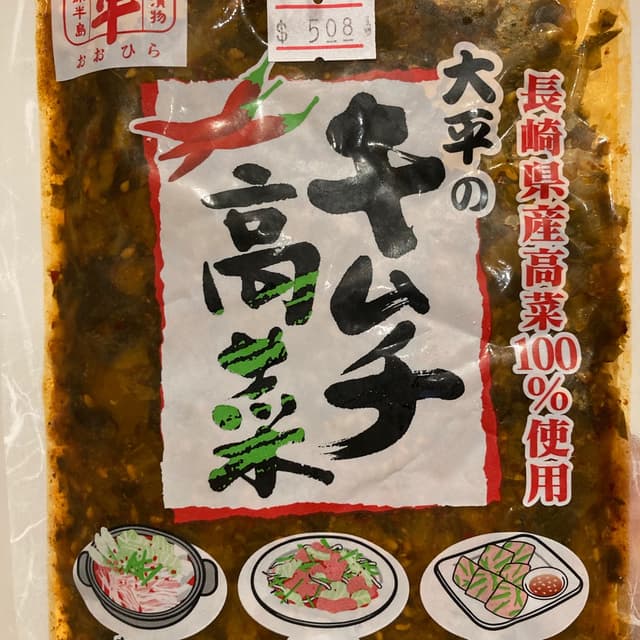 漬物
平
半島
おおひら
$ 5.08
大平の
キムチ
高菜
長崎県産高菜100%使用